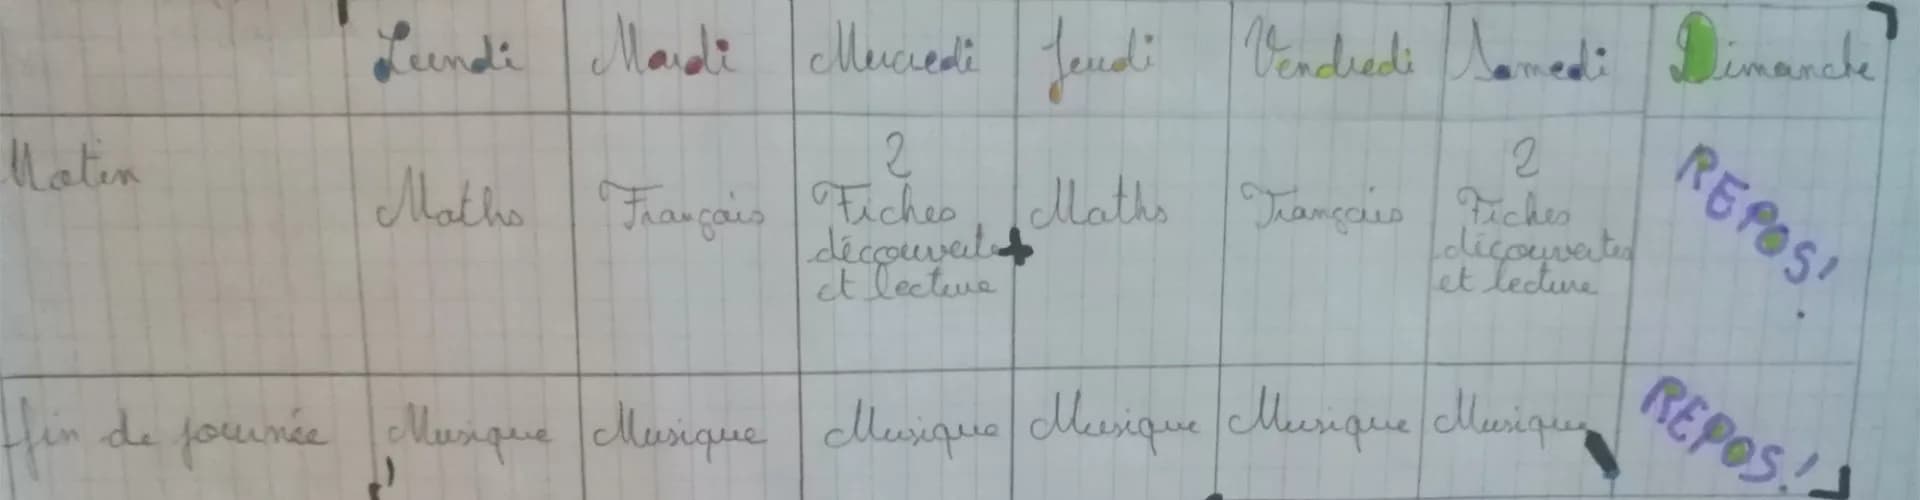 Lundi Mardi Mercredi Jeudi Vendredi Samedi Dimanche
Matin Maths Français 2 Fiches découverte et lecture Maths Français 2 Fiches découvertes et lecture REPOS!
fin de journée Musique Musique Musique Musique Musique Musique REPOS!